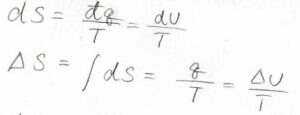 dS = đq/T = dU/T
ΔS = ∫dS = q/T = ΔU/T